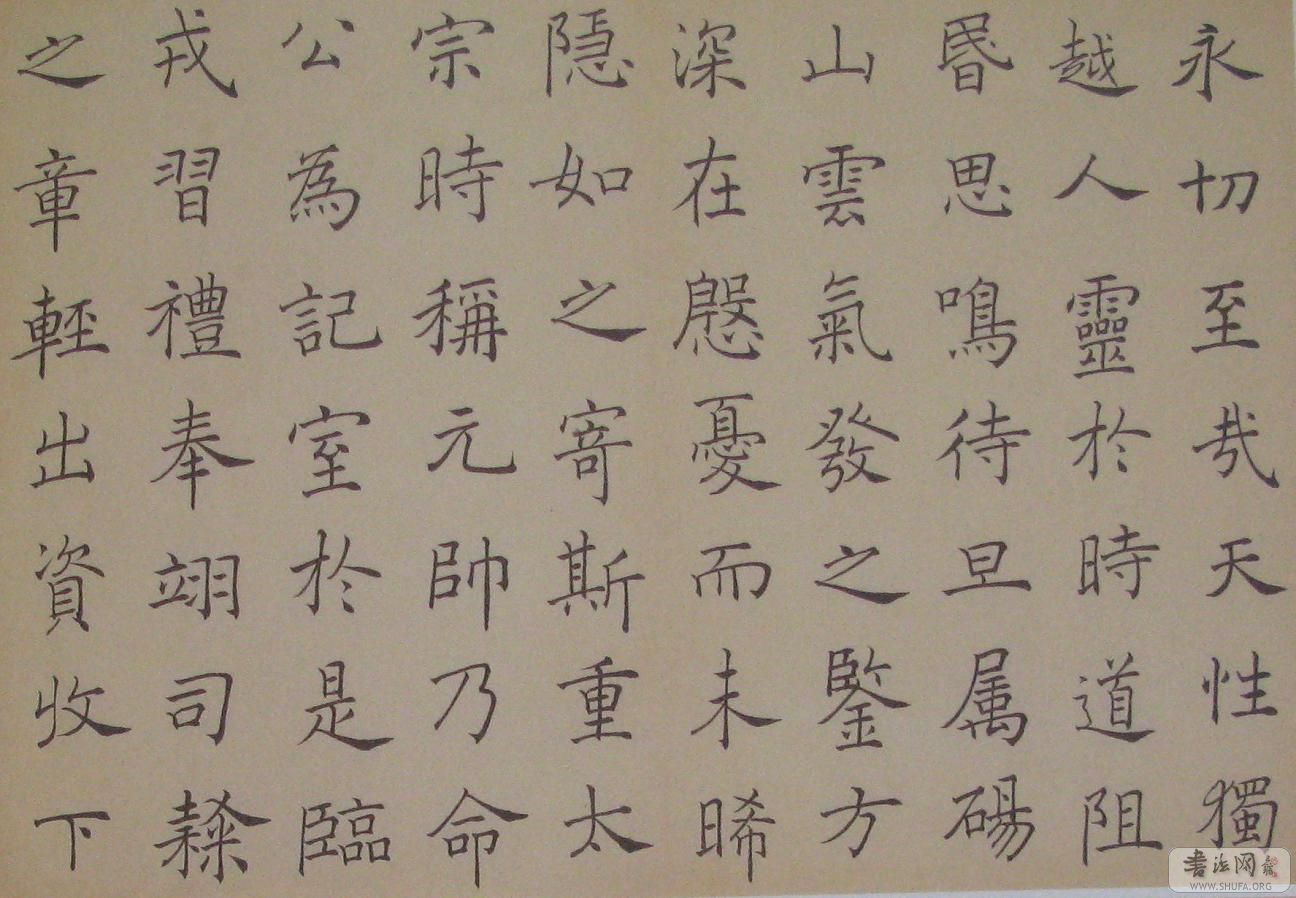 永切至哉天性獨
越人靈於時道阻
昬思鳴待旦属碭
山雲氣發之鑒方
深在慇憂而未晞
隠如之寄斯重太
宗時稱元帥乃命
公為記室於是臨
戎習禮奉翊司隸
之章輕出資收下
书法网
WWW.SHUFA.ORG